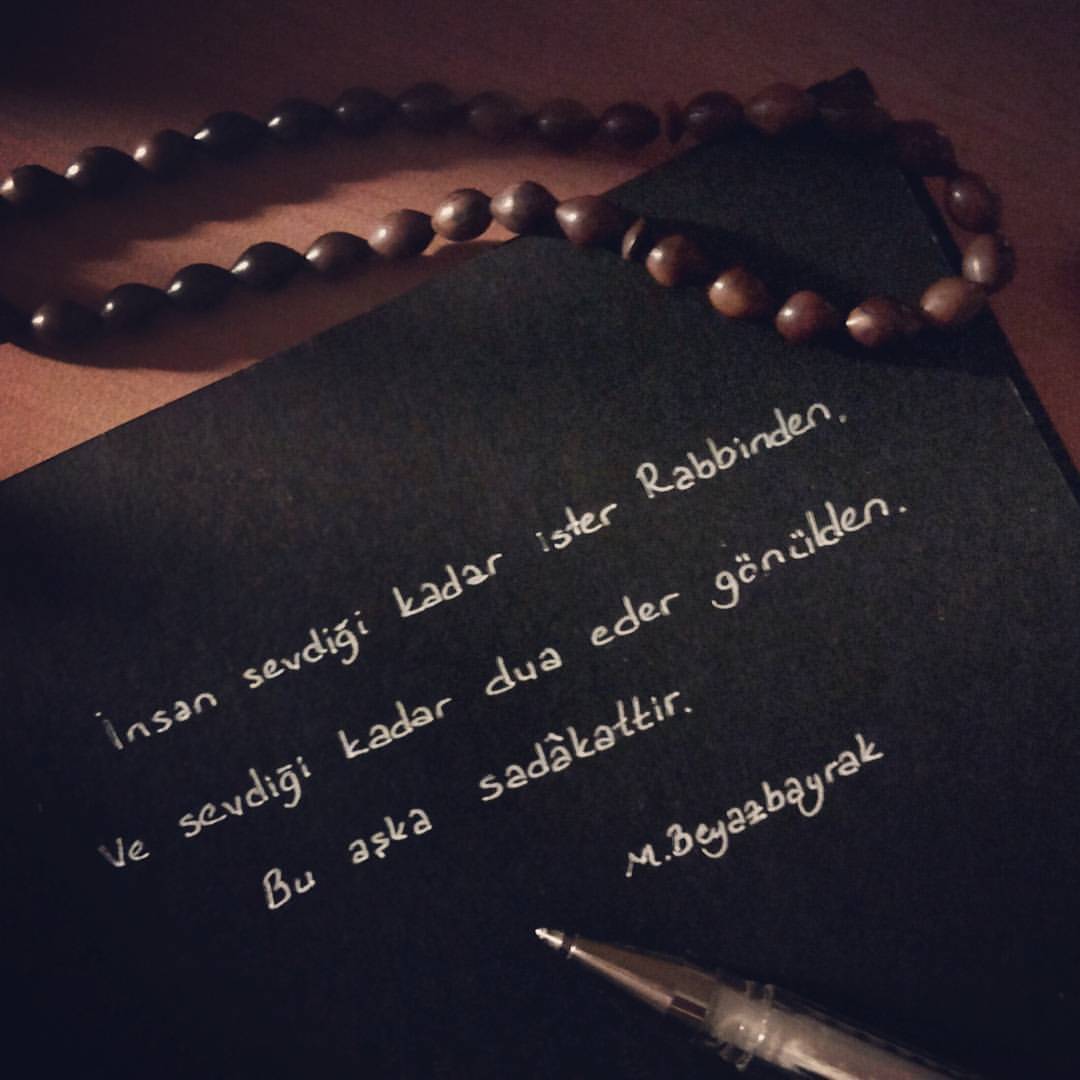 İnsan sevdiği kadar ister Rabbinden.
Ve sevdiği kadar dua eder gönülden.
Bu aşka sadâkattir.
M.Beyazbayrak